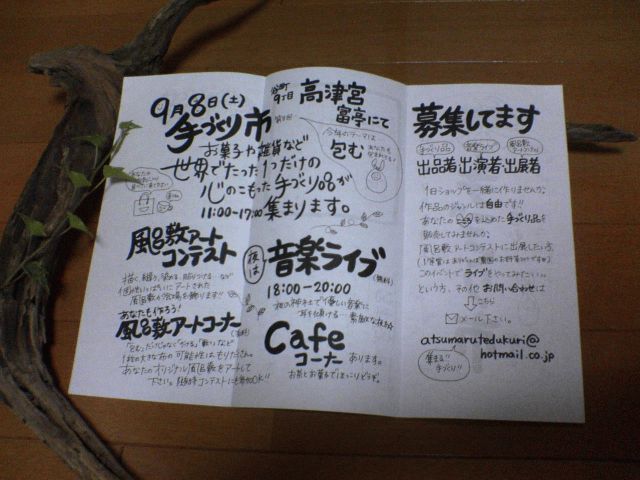 9月8日(土)
手づくり市
お菓子や雑貨など
世界でたった1つだけの
心のこもった手づくり品が
11:00〜17:00 集まります。
谷町
9丁目
高津宮
富亭にて
今年のテーマは
包む
風呂敷アート
コンテスト
描く、織る、染める、貼りつける…など
個性いっぱいにアートされた
風呂敷が会場を飾ります!!
あなたも作ろう!
風呂敷アートコーナー
1枚の大きな布の可能性はもりだくさん。
あなたのオリジナル風呂敷をアートして
下さい。
夜は
音楽ライブ
(無料)
18:00〜20:00
夜の神社で優しい音楽に
耳を傾ける…素敵な夜を
Cafe
コーナー あります。
お茶とお菓子でほっこりどうぞ。
募集してます
手づくり品
音楽ライブ
風呂敷
アートコンテスト
出品者 出演者 出展者
1日ショップを一緒に作りませんか?
作品のジャンルは自由です!!
あなたの心を込めた手づくり品を
販売してみませんか?
風呂敷アートコンテストに出展したい方
このイベントでライブをやってみたい…
という方、その他お問い合わせは
こちら
メール下さい。
atsumarutedukuri@
hotmail.co.jp
集まる!!
手づくり!!